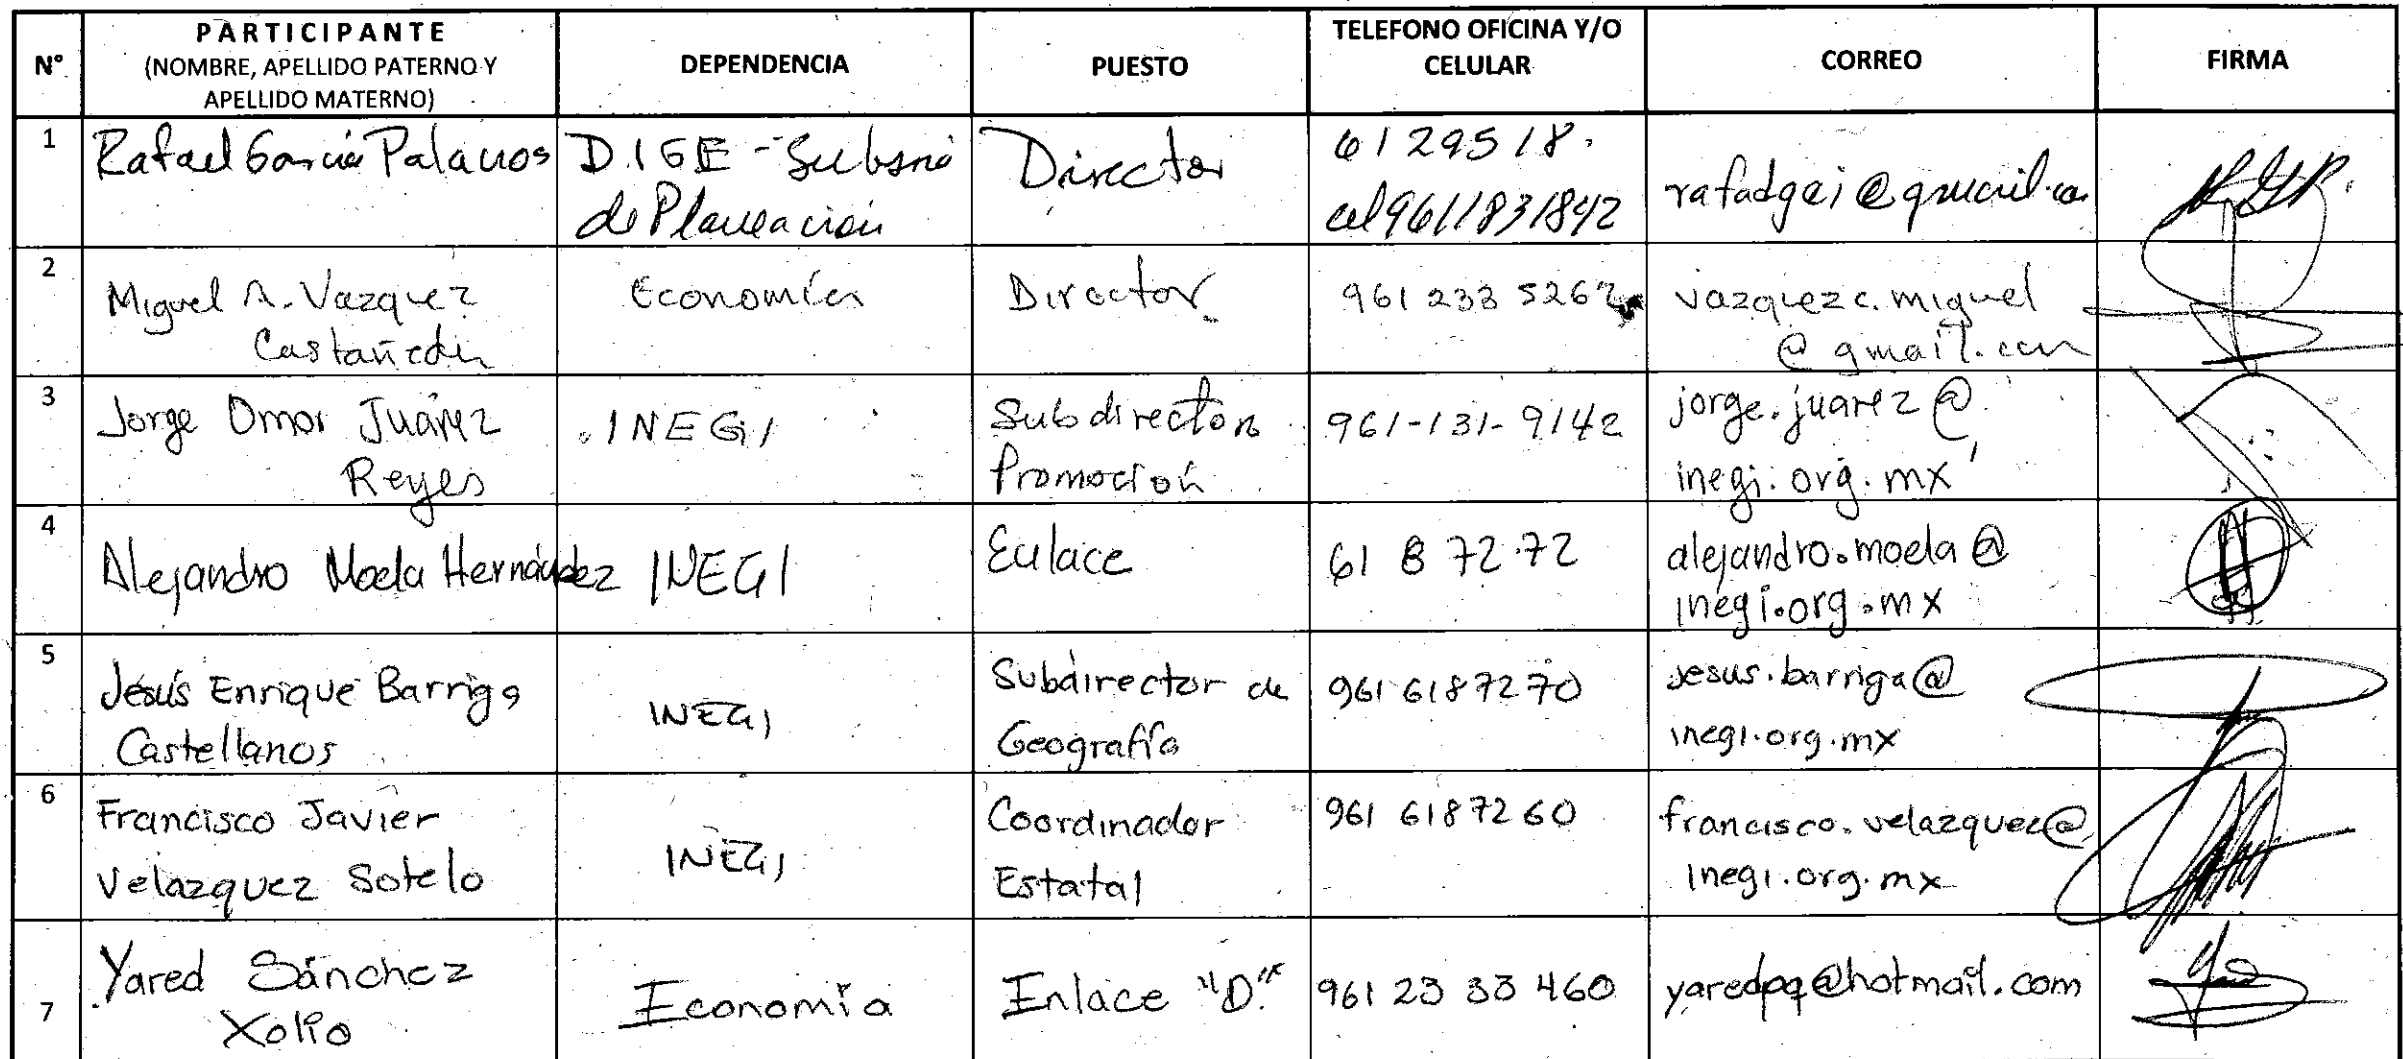 N°
PARTICIPANTE
(NOMBRE, APELLIDO PATERNO Y
APELLIDO MATERNO)
DEPENDENCIA
PUESTO
TELEFONO OFICINA Y/O
CELULAR
CORREO
FIRMA
1
Rafael García Palacios
D.I GE - Subsría
de Planeación
Director
61 295 18.
cel 9611831842
@gmail.co
2
Miguel A. Vazquez
Castañeda
Economía
Director
961 233 5262
vazquezc.miguel
@gmail.com
3
Jorge Omar Juárez
Reyes
INEGI
Subdirector
Promoción
961-131-9142
jorge.juarez@
inegi.org.mx
4
Alejandro Moela Hernández
INEGI
Enlace
61 8 72 72
alejandro.moela@
inegi.org.mx
5
Jesús Enrique Barriga
Castellanos
INEGI
Subdirector de
Geografía
961 6187270
jesus.barriga@
inegi.org.mx
6
Francisco Javier
Velazquez Sotelo
INEGI
Coordinador
Estatal
961 6187260
francisco.velazquez@
inegi.org.mx
7
Yared Sánchez
Xolio
Economía
Enlace "D"
961 23 33 460
yaredpq@hotmail.com